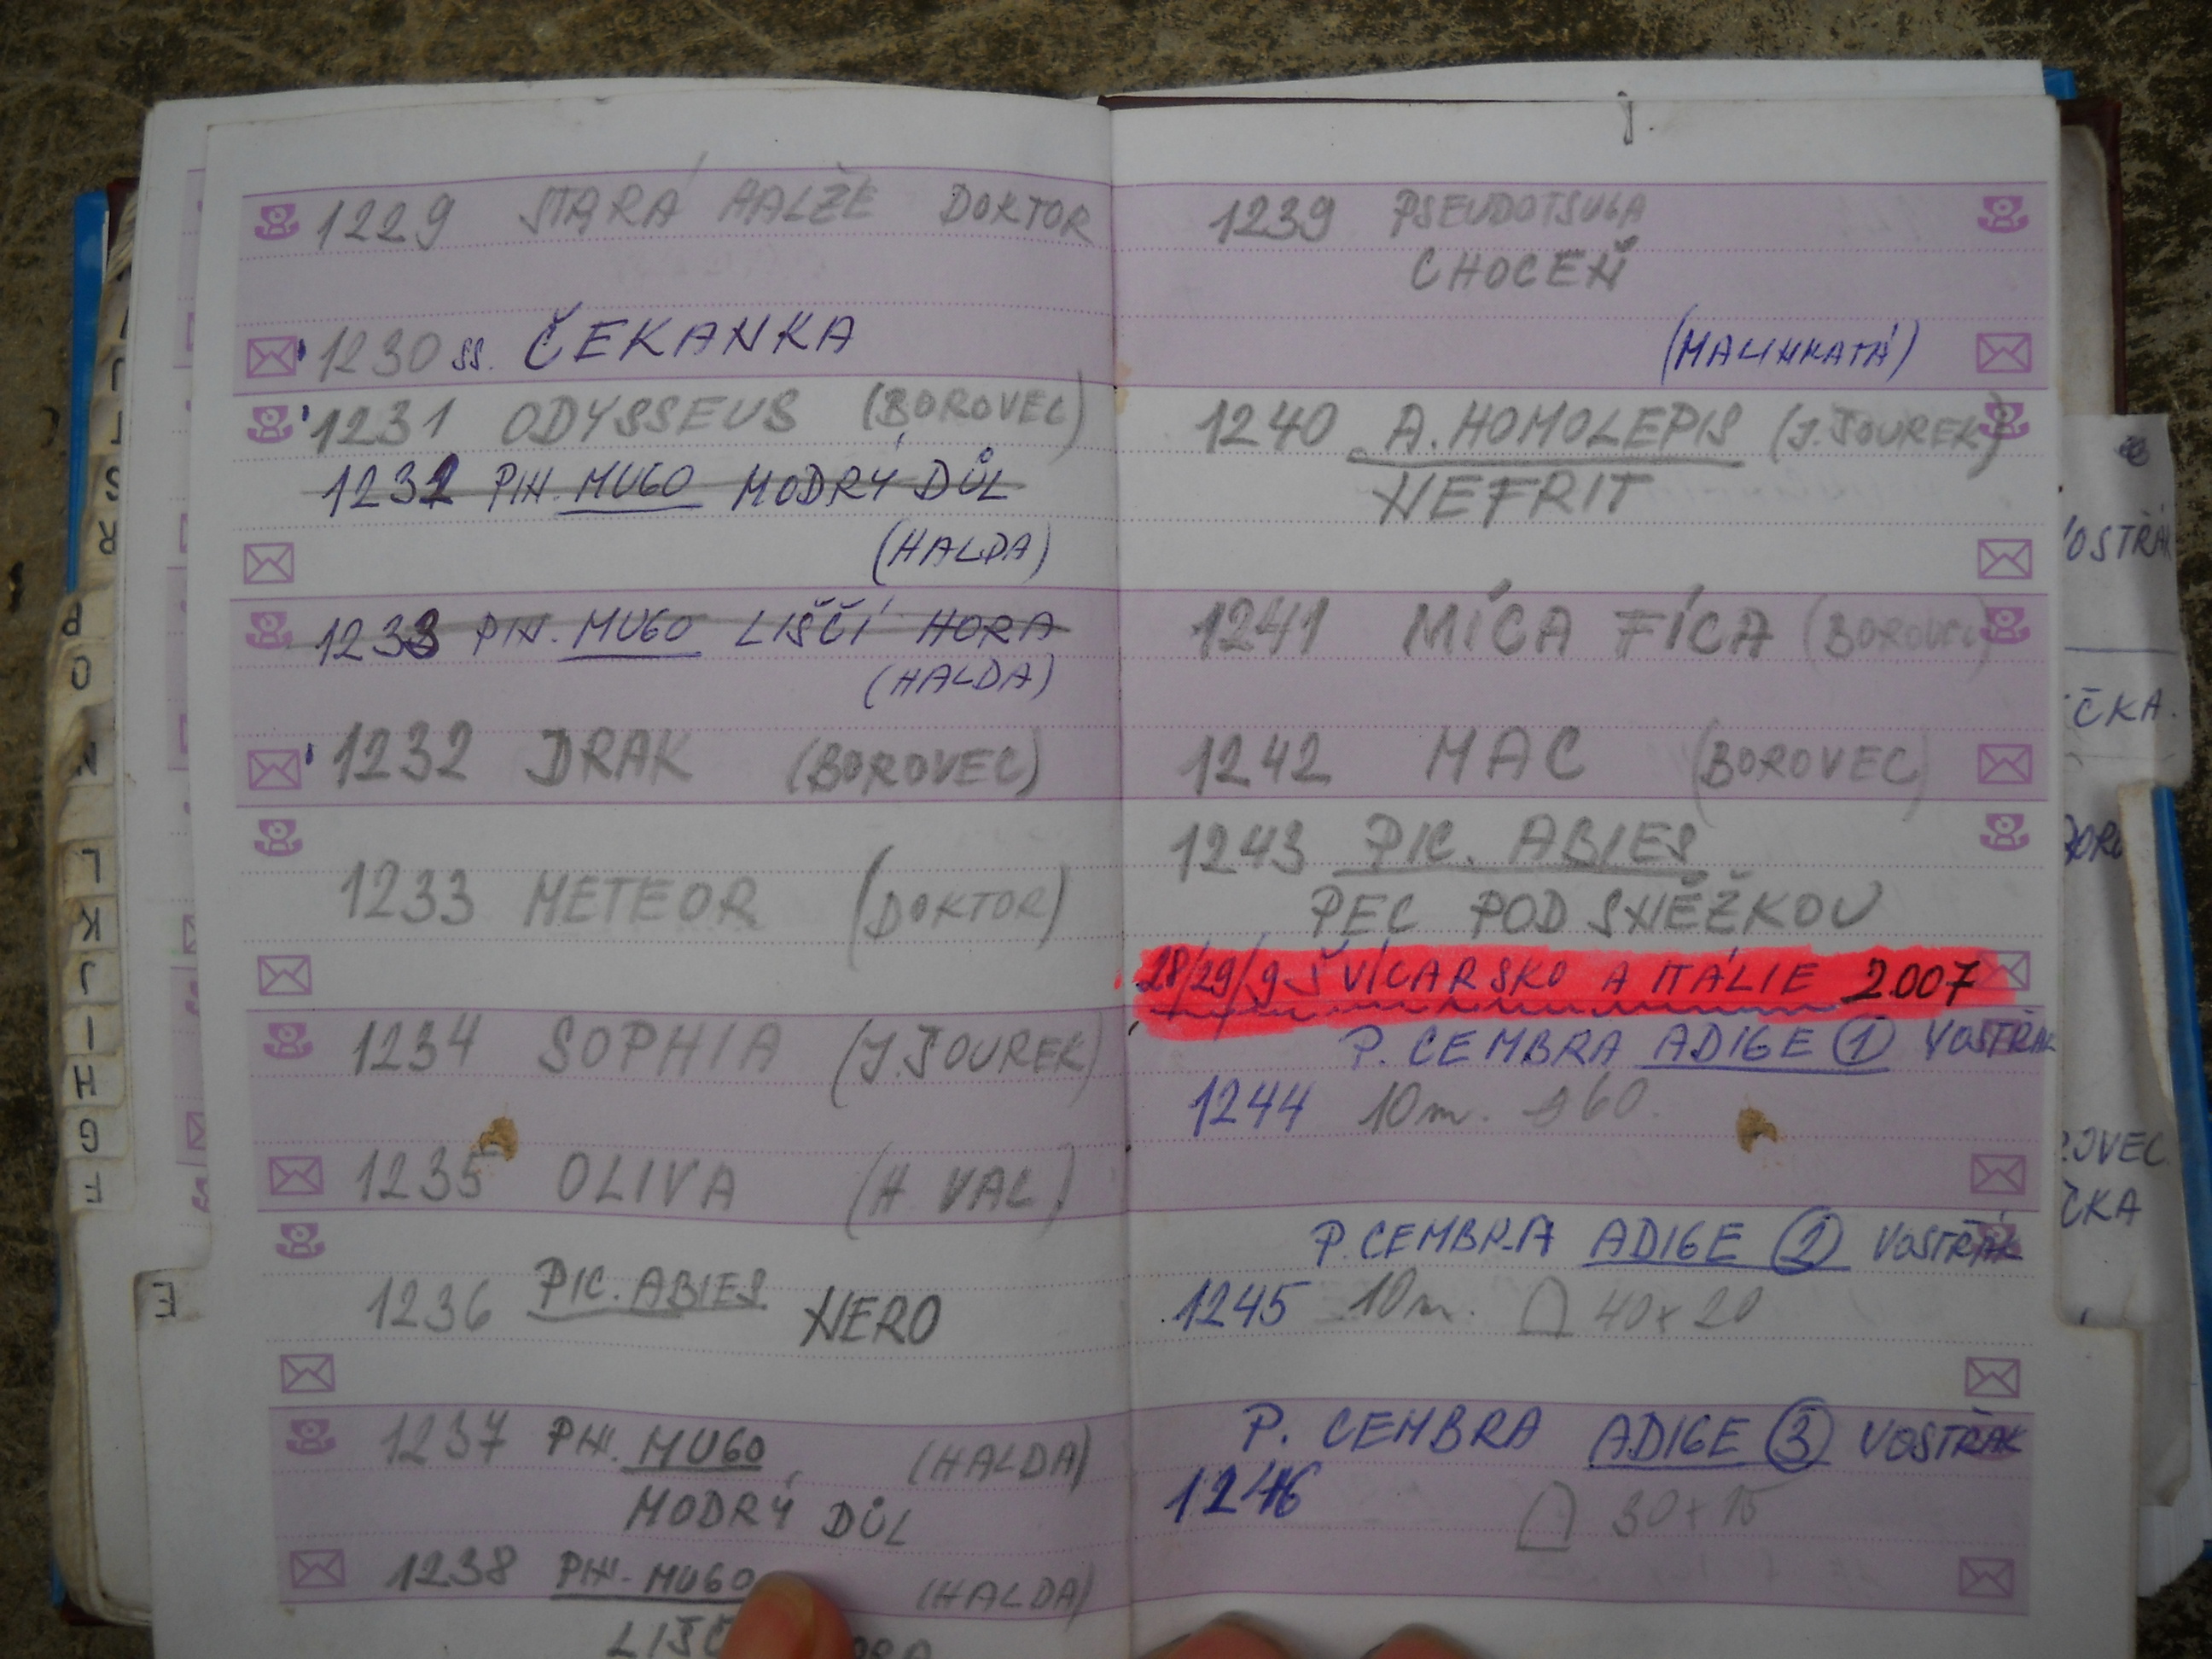 1229 STARÁ HALŽE DOKTOR
1230 SS. ČEKANKA
1231 ODYSSEUS (BOROVEC)
1232 PIN. MUGO MODRÝ DŮL
(HALDA)
1233 PIN. MUGO LIŠČÍ HORA
(HALDA)
1232 DRAK (BOROVEC)
1233 METEOR (DOKTOR)
1234 SOPHIA (J. ŠOUREK)
1235 OLIVA (H. VAL)
1236 PIC. ABIES NERO
1237 PIN. MUGO (HALDA)
MODRÝ DŮL
1238 PIN. MUGO (HALDA)
1239 PSEUDOTSUGA
CHOCEŇ
(MALINKATÁ)
1240 A. HOMOLEPIS (J. ŠOUREK)
NEFRIT
1241 MÍCA FÍCA (BOROVEC)
1242 MAC (BOROVEC)
1243 PIC. ABIES
PEC POD SNĚŽKOU
28/29/9 ŠVÍCARSKO A ITÁLIE 2007
P. CEMBRA ADIGE 1 VOSTŘÁK
1244 10m. 60
P. CEMBRA ADIGE 2 VOSTŘÁK
1245 10m. 40x20
P. CEMBRA ADIGE 3 VOSTŘÁK
1246 30x15
S
R
P
O
N
L
K
J
I
H
G
F
E
ČKA.
ČKA